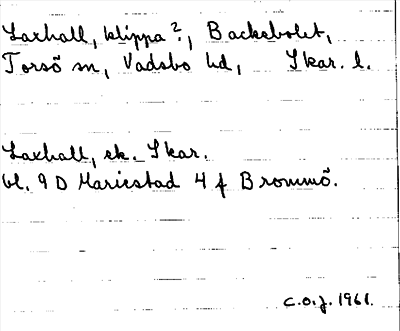 Laxhall, klippa?, Backabolet,
Torsö sn, Vadsbo hd, Skar. l.
Laxhall, ek. Skar.
bl. 9 D Mariestad 4 f Brommö.
C.O.J. 1961.